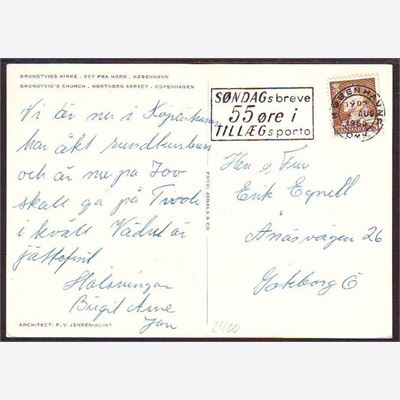 GRUNDTVIGS KIRKE . SET FRA NORD . KØBENHAVN
GRUNDTVIG'S CHURCH . NORTHERN ASPECT . COPENHAGEN
Vi är nu i Köpenhamn
har åkt rundtursbuss
och är nu på Zoo
skall gå på Tivoli
i kväll Vädret är
jättefint
Hälsningar
Birgit Arne
Jan
ARCHITECT: P. V. JENSEN-KLINT
FOTO: JONALS & CO
SØNDAGsbreve
55 øre i
TILLÆGsporto
KØBENHAVN
AUG
DANMARK
Herr o Fru
Erik Egnell
Anäsvägen 26
Göteborg Ö